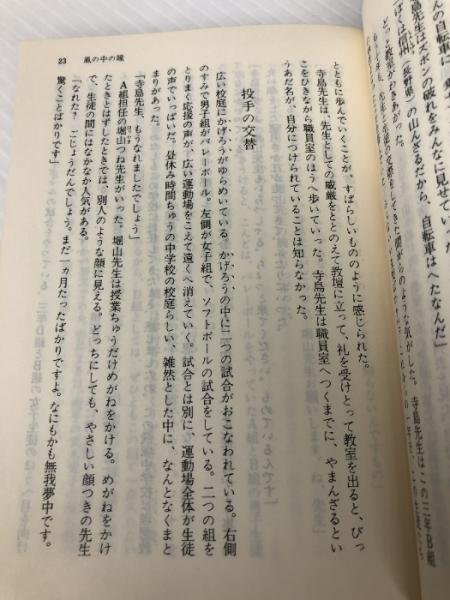 んの自転車に
先生はズボンの破れをみんなに見せていた。
ぼくは信州(長野県)の山んざるだから、自転車はへたなんだ」
とともに歩んでいくことが、すばらしいもののように感じられた。
寺島先生は、先生としての威厳をととのえて教壇に立って、礼を受けとって教室を出ると、びっ
こをひきながら職員室のほうへ歩いていった。寺島先生は職員室へつくまでに、やまんざるとい
うあだ名が、自分につけられていることは知らなかった。
投手の交替
広い校庭にかげろうがゆらめいている。かげろうの中に二つの試合がおこなわれている。右側
のすみで男子組がバレーボール。左側が女子組で、ソフトボールの試合をしている。二つの組を
とりまく応援の声が、広い運動場をこえて遠くへ消えていく。試合とは別に、運動場全体が生徒
の声でいっぱいだ。昼休み時間ちゅうの中学校の校庭らしい、雑然とした中に、なんとなくまと
まりがあった。
「寺島先生、もうなれましたでしょう」
A組担任の堀山つね先生がいった。堀山先生は授業ちゅうだけめがねをかける。めがねをかけ
たときとはずしたときでは、別人のような顔に見える。どっちにしても、やさしい顔つきの先生
で、生徒の間にはなかなか人気がある。
「なれた? ごじょうだんでしょう。まだ一ヵ月たったばかりですよ。なにもかも無我夢中です。
驚くことばかりです」
23 風の中の瞳